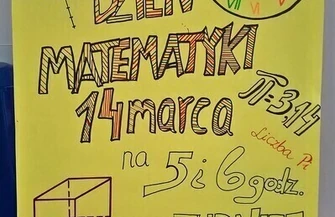 DZIEŃ
MATEMATYKI
14 marca
π=3,14
Liczba Pi
na 5 i 6 godz.